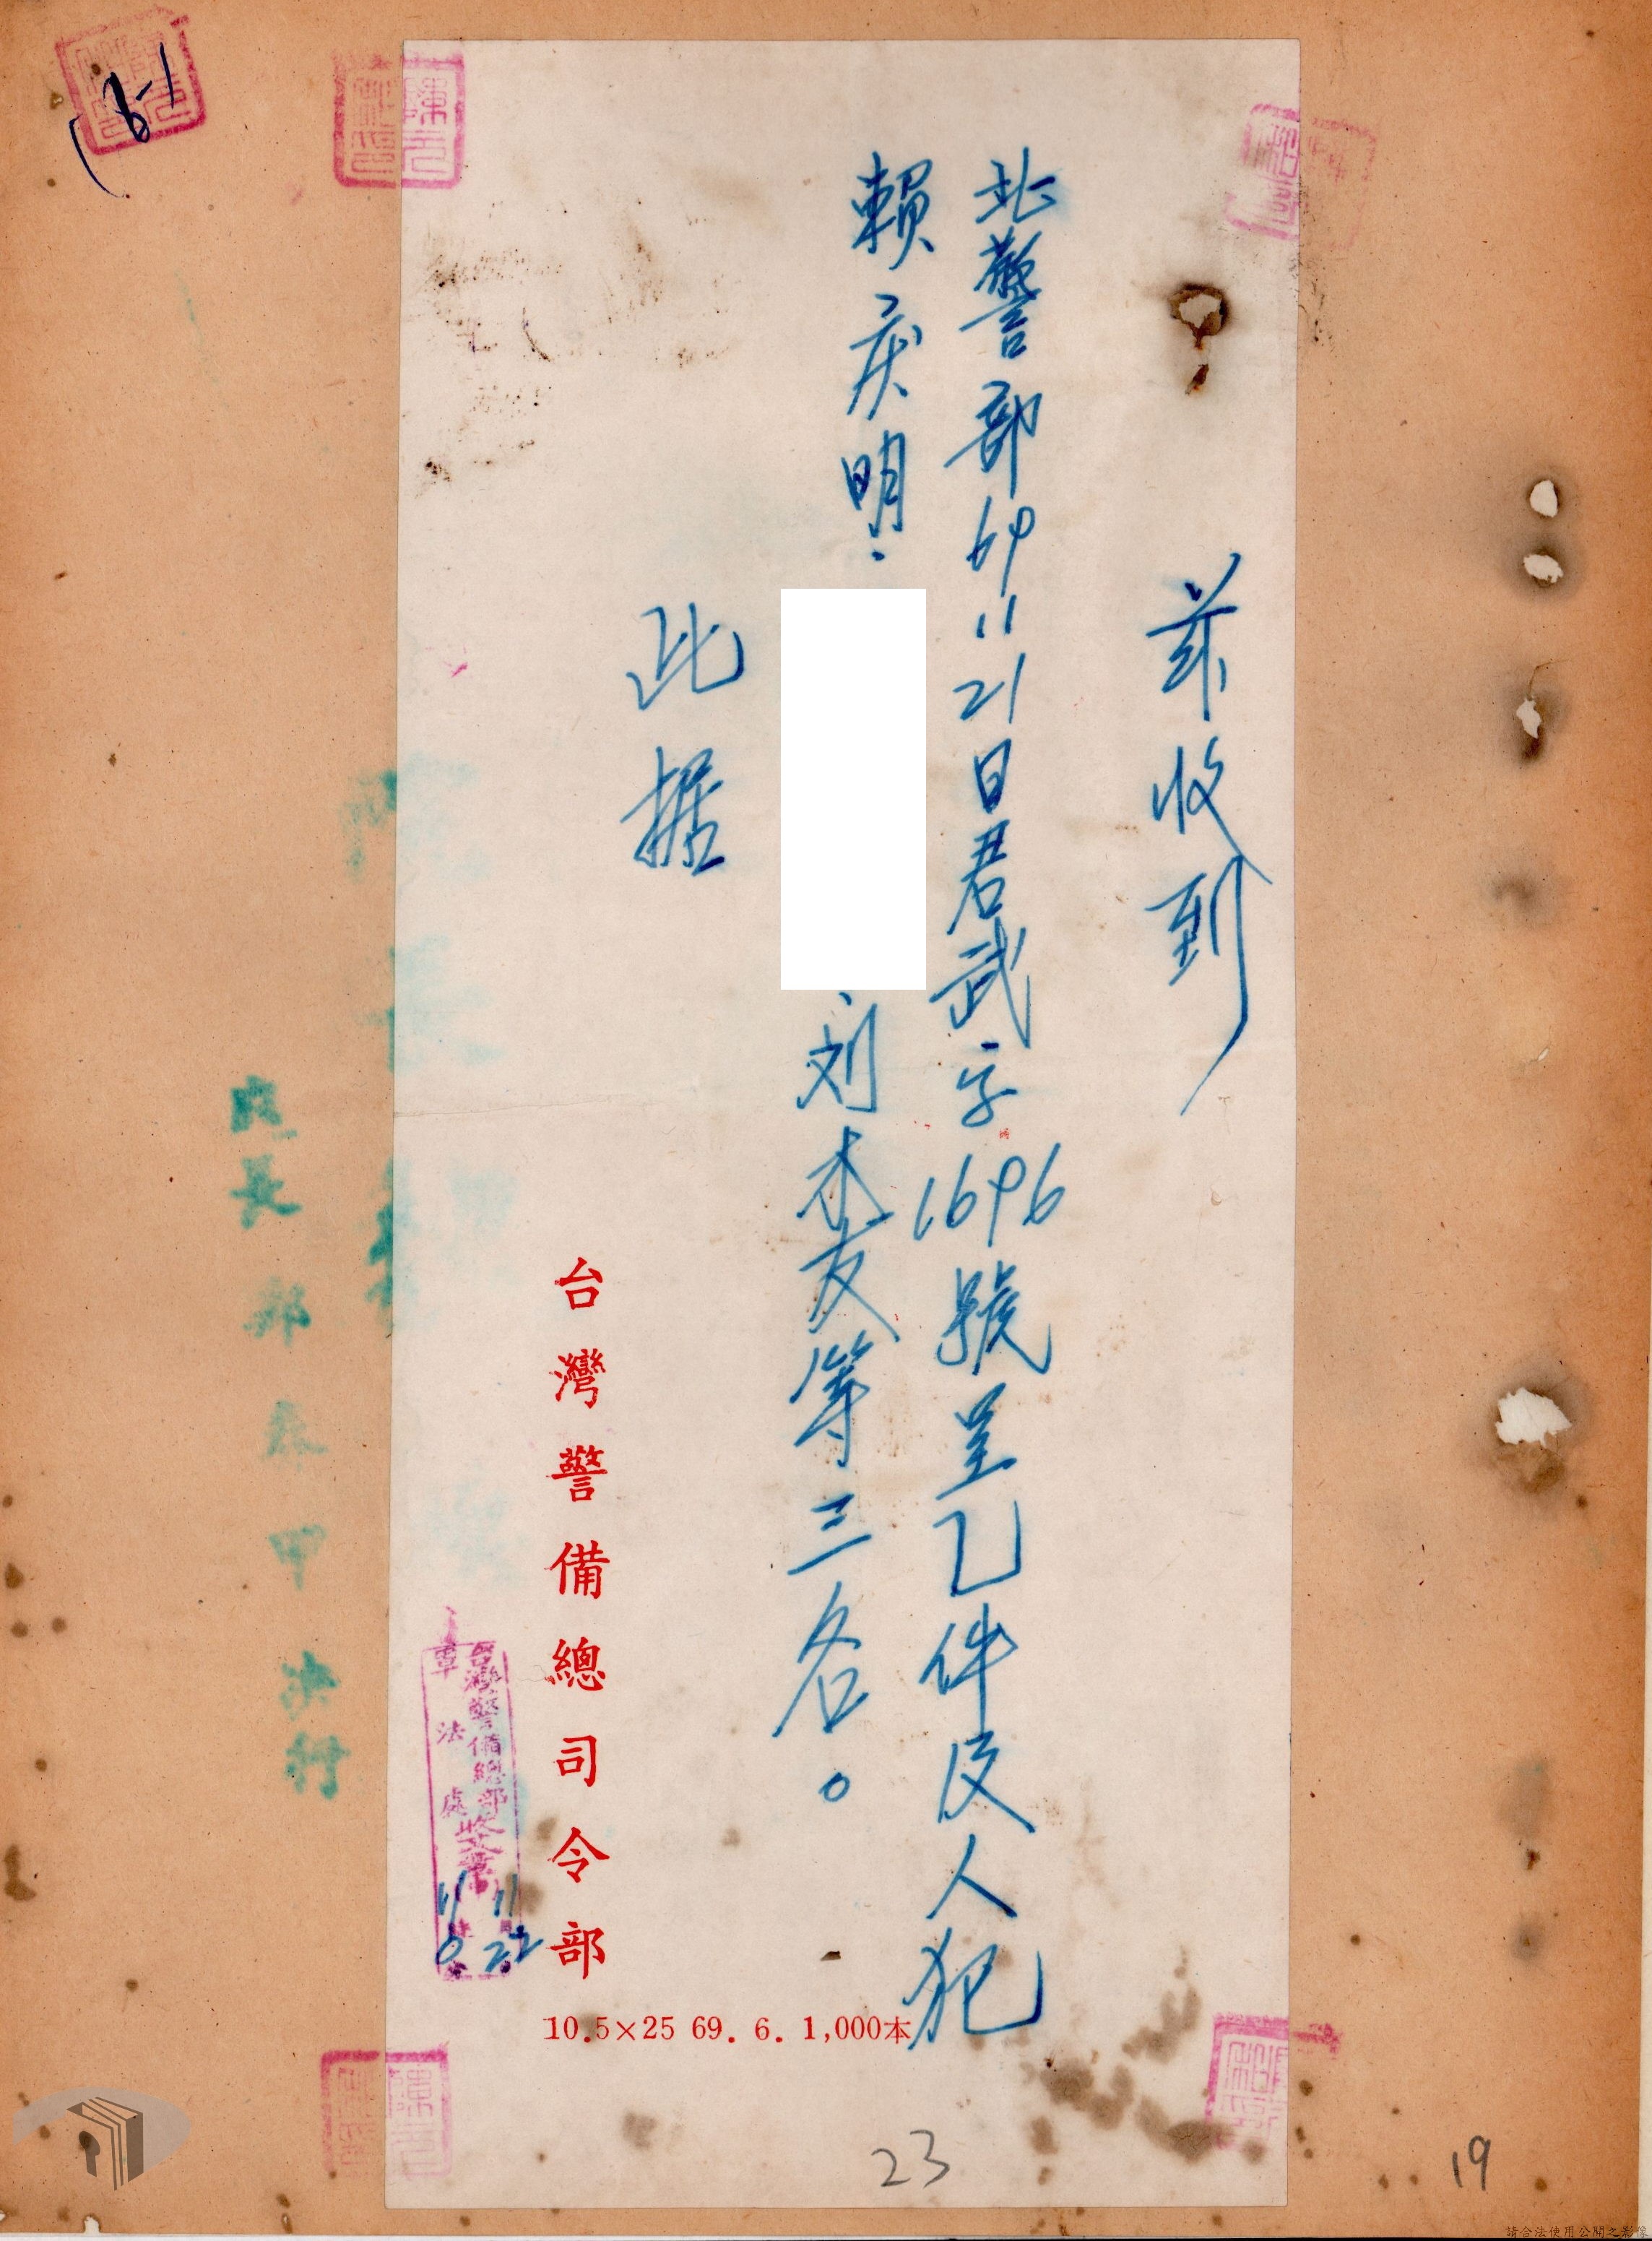 茲收到
北警部69 11 21日君武字1696號呈乙件及人犯
賴庆明、
、刘木友等三名。
此据
台灣警備總司令部
10.5×25 69. 6. 1,000本
台灣警備總部
軍法處收文章
11 11
22
23
19
決行
請合法使用公開之影像